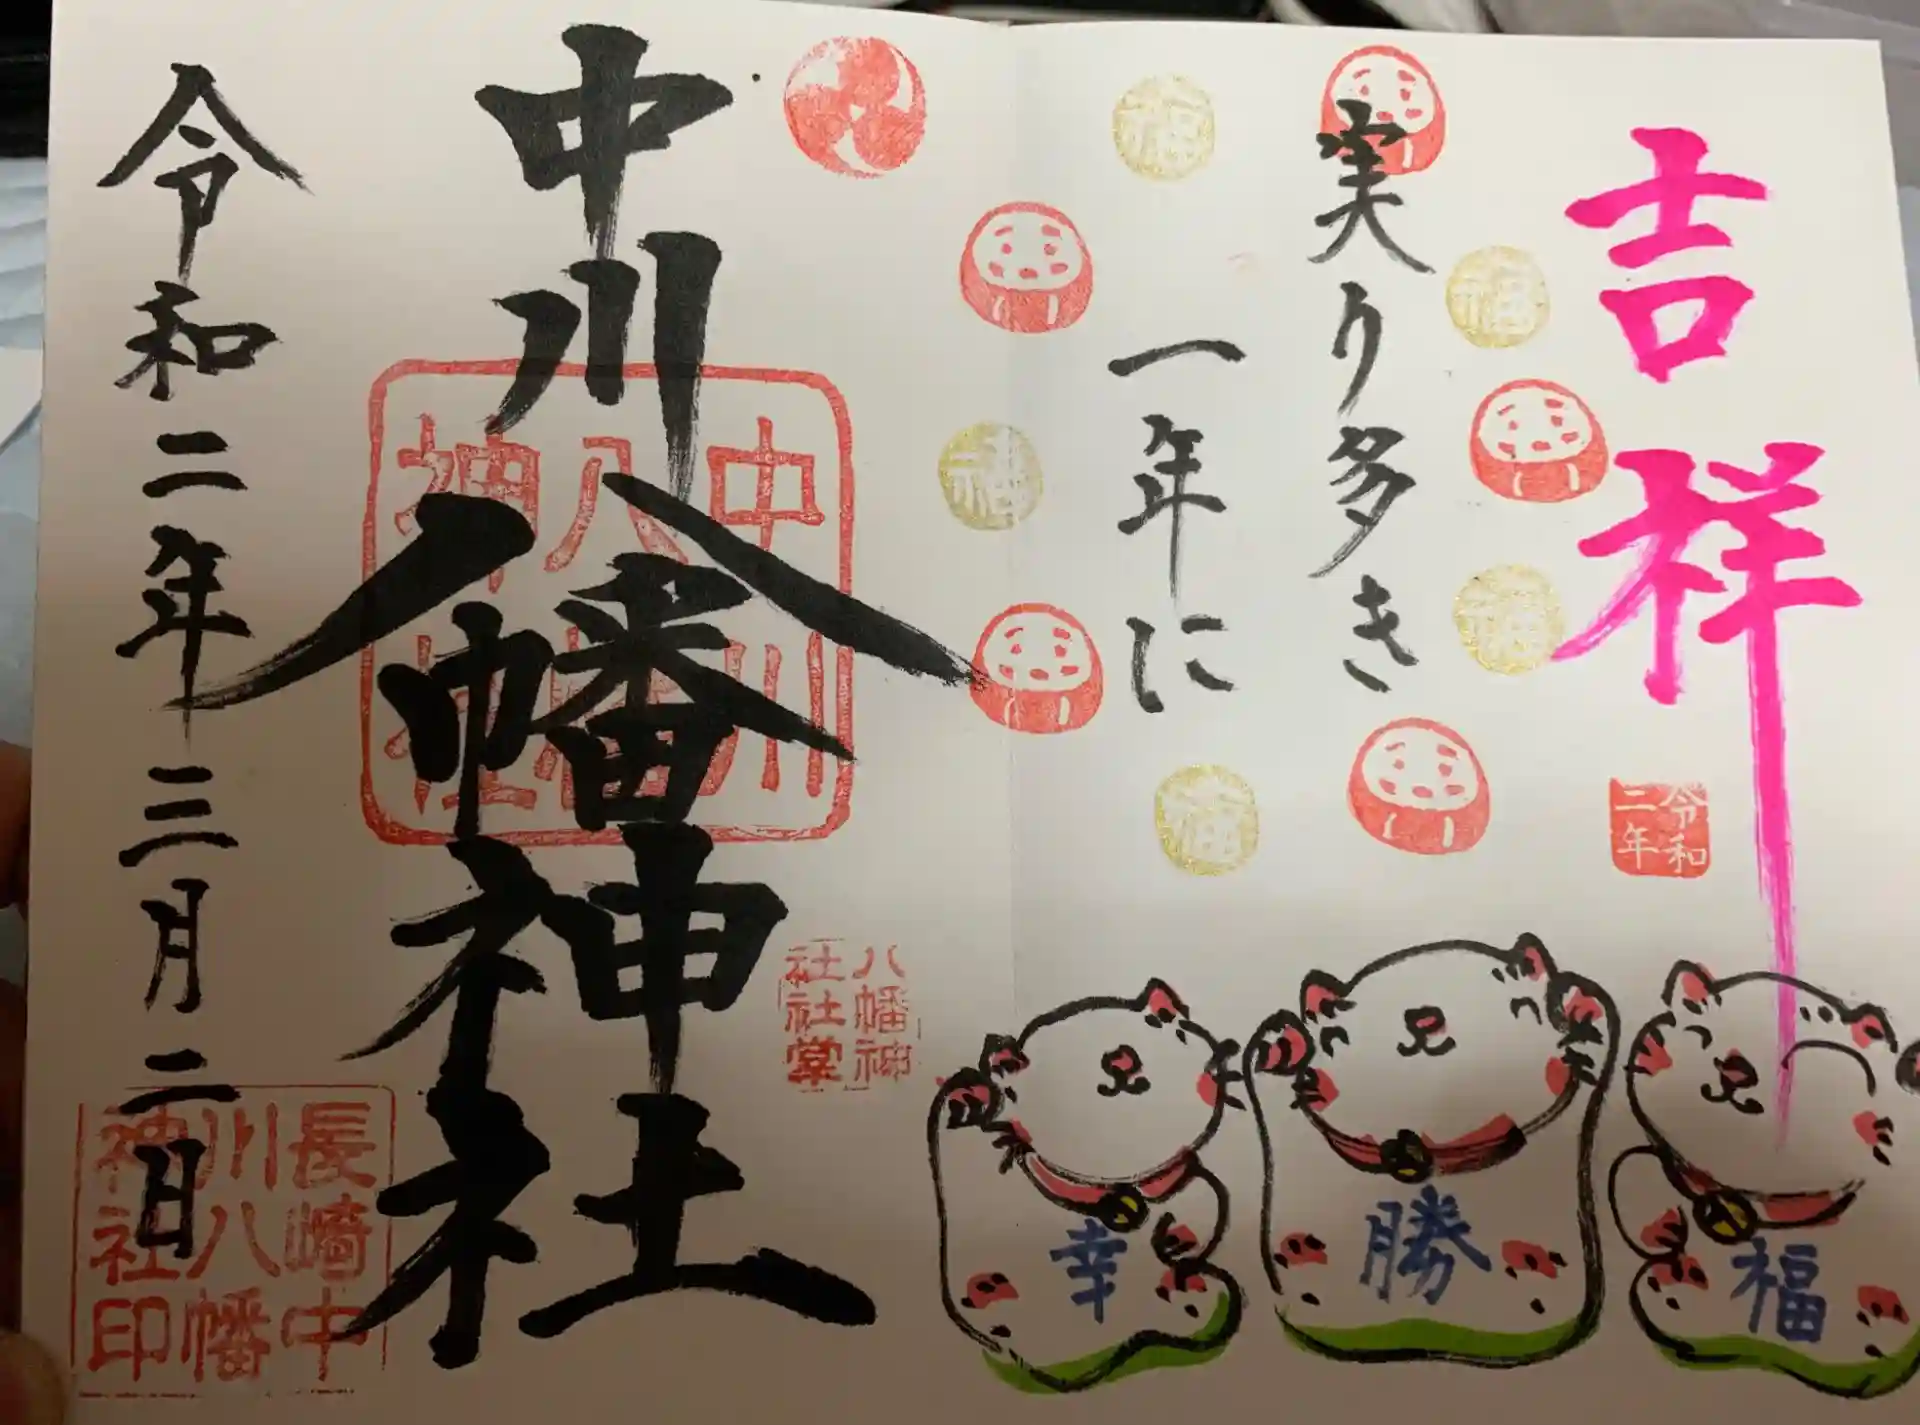 吉祥
実り多き
一年に
令和
二年
福
福
福
福
福
中川八幡神社
中川
八幡
神社
八幡神
社社掌
令和二年三月二日
長崎中
川八幡
神社印
幸
勝
福